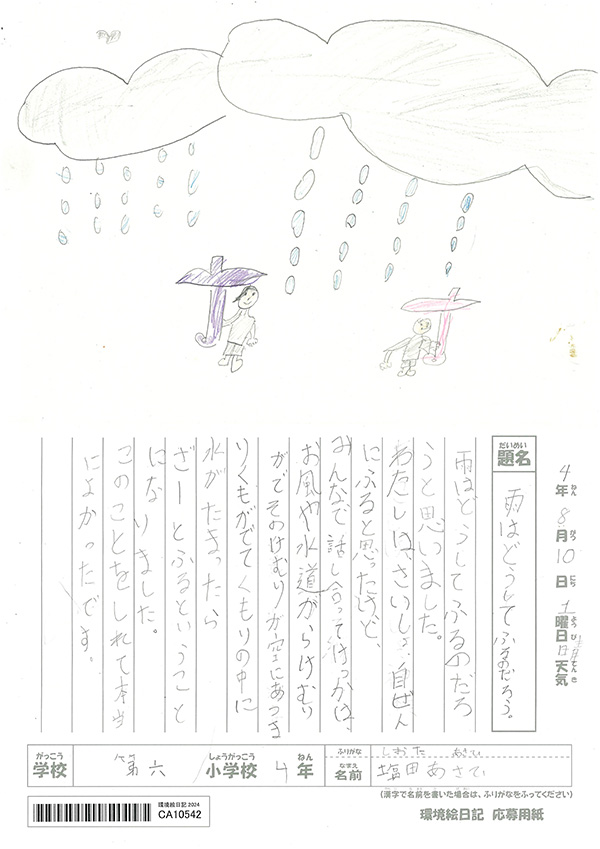 4年8月10日土曜日天気晴
ねん がつ にち ようび てんき
だいめい
題名
雨はどうしてふるのだろう。
雨はどうしてふるのだろ
うと思いました。
わたしは、さいしょ自ぜん
にふると思ったけど、
みんなで話し合ってけっかは、
お風や水道からけむり
がでてそのけむりが空にあつま
りくもがでてくもりの中に
水がたまったら
ざーとふるということ
になりました。
このことをしれて本当
によかったです。
がっこう
学校
第六
しょうがっこう
小学校
4年
ねん
ふりがな
しおた
なまえ
名前
塩田あさひ
(漢字で名前を書いた場合は、ふりがなをふってください)
環境絵日記 2024
CA10542
環境絵日記 応募用紙